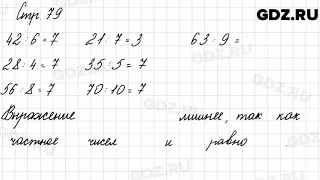 Стр. 79
GDZ.RU
42 : 6 = 7 21 : 7 = 3 63 : 9 =
28 : 4 = 7 35 : 5 = 7
56 : 8 = 7 70 : 10 = 7
Выражение лишнее, так как
частное чисел и равно
GDZ.RU